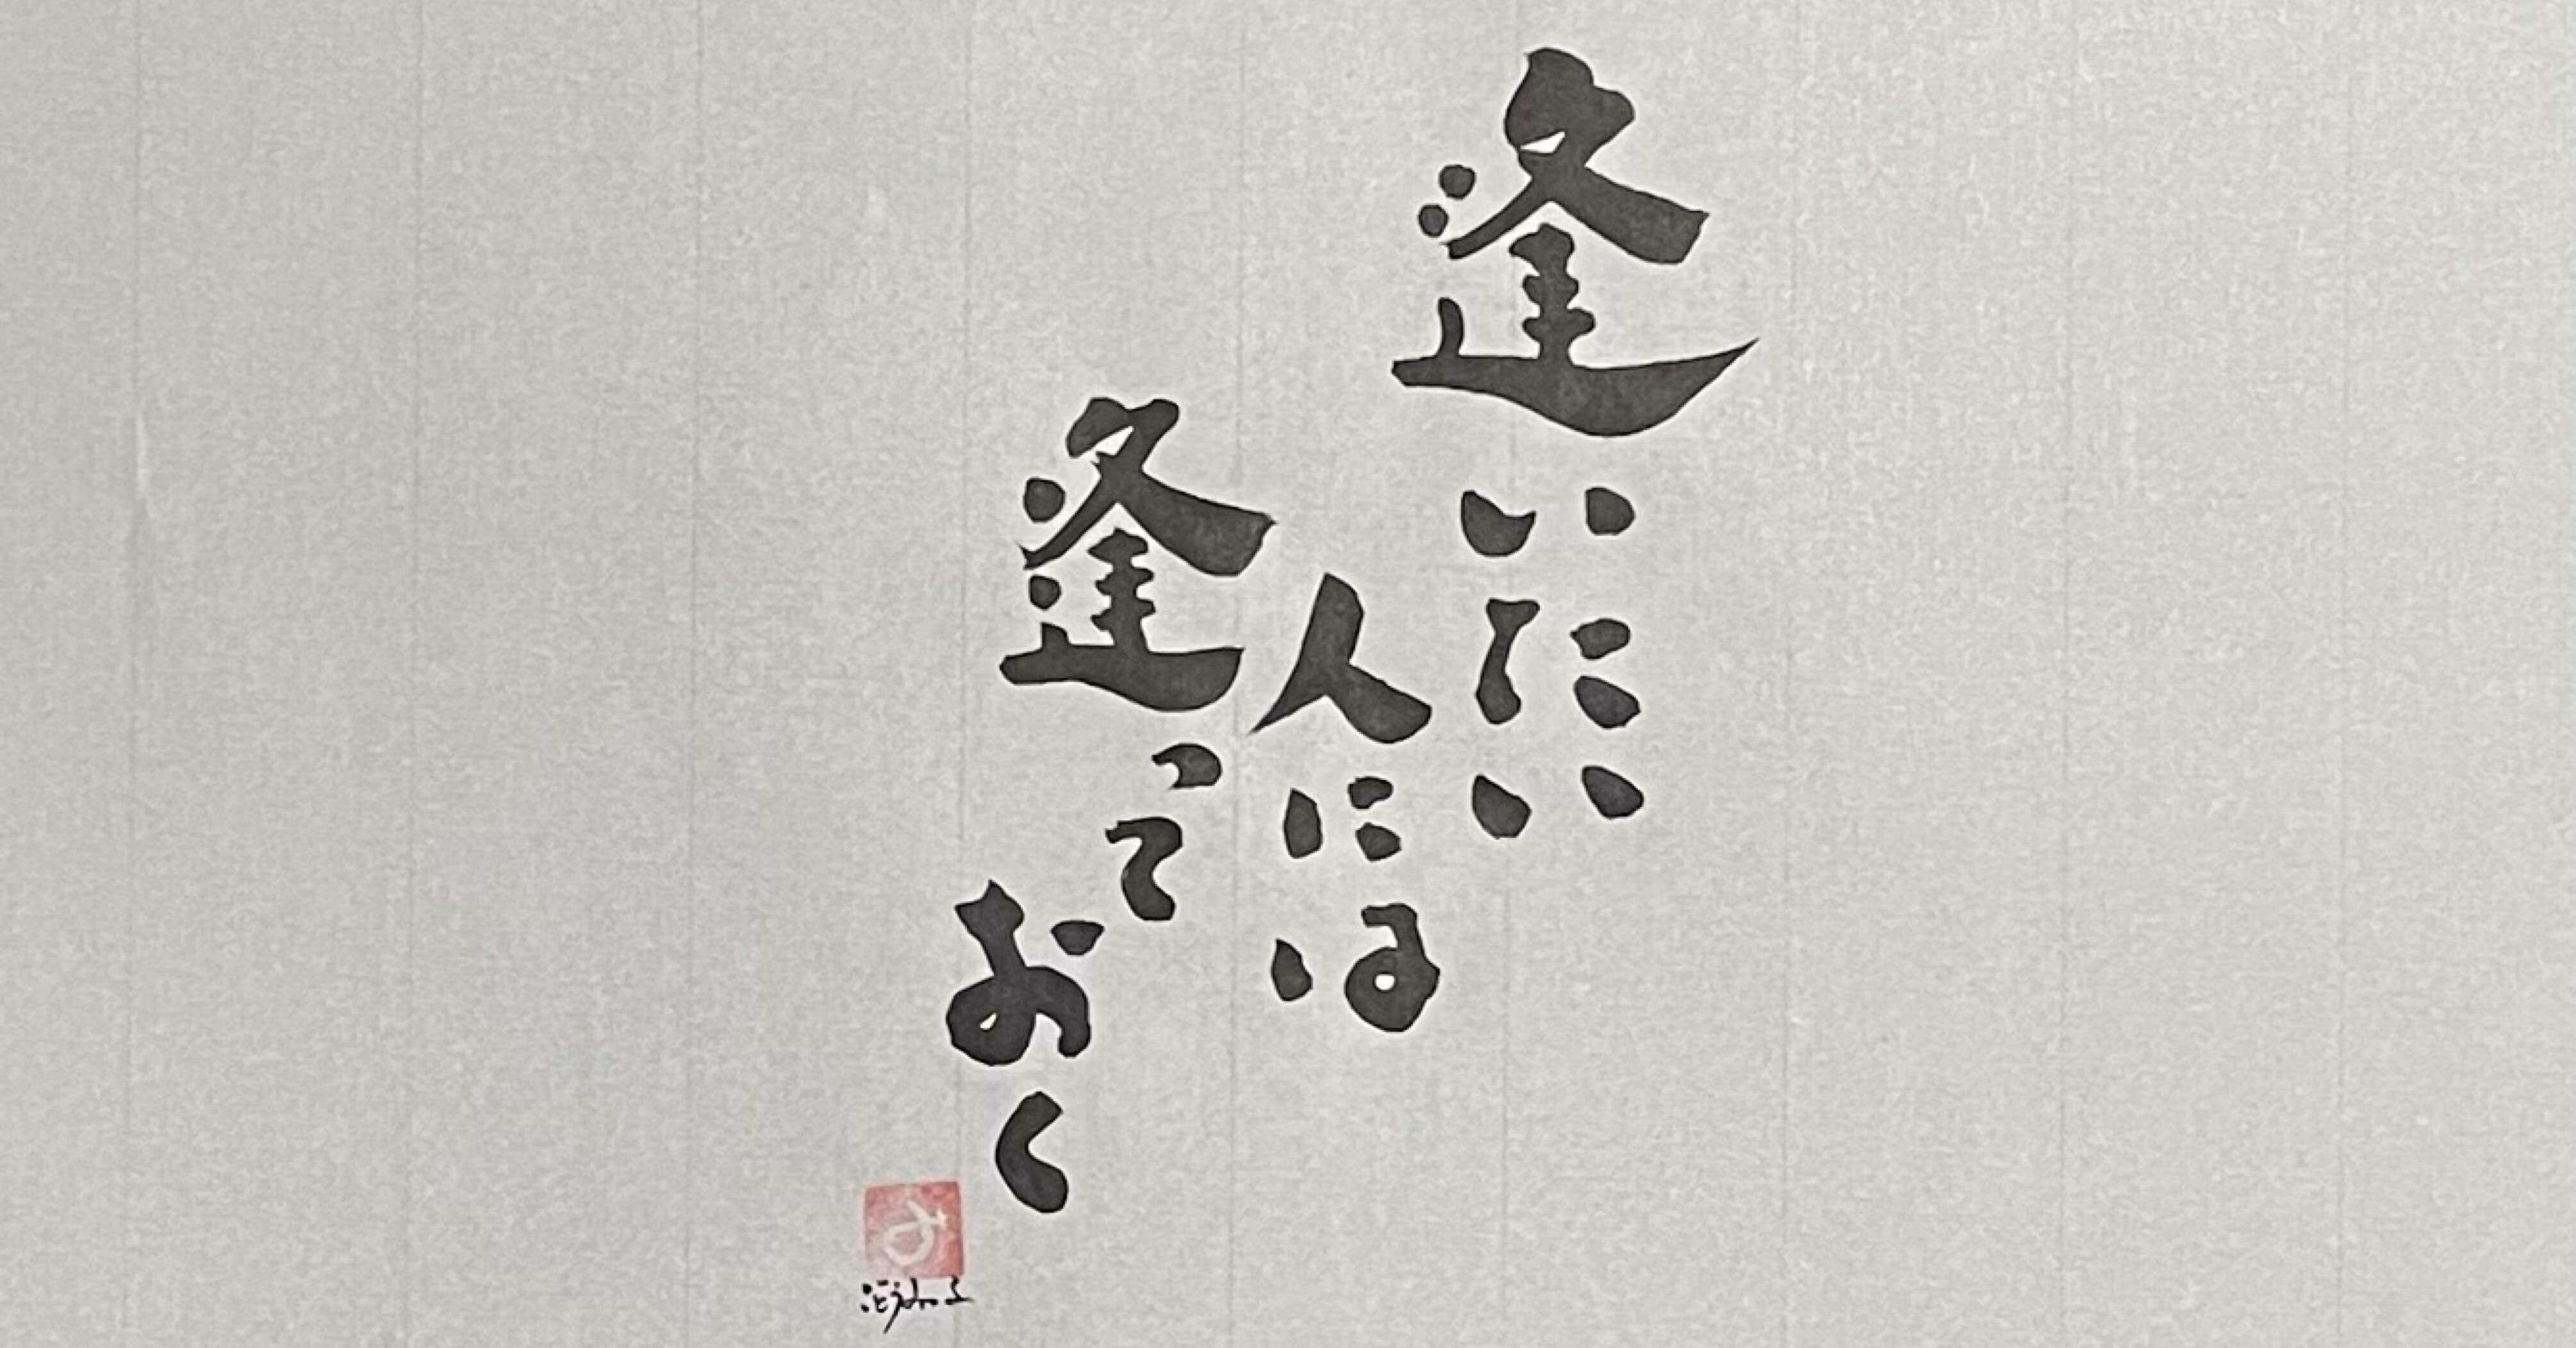 逢いたい
人には
逢って
おく